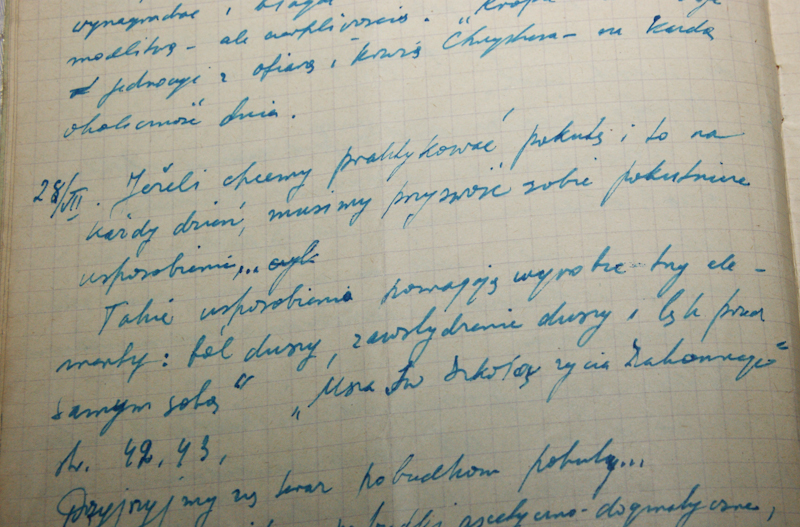 wynagradzać i błagać
modlitwą – ale cierpliwością.
jednocząc z ofiarą i krwią Chrystusa – na każdą
okoliczność dnia.
28/VII. Jeżeli chcemy praktykować pokutę i to na
każdy dzień, musimy przyswoić sobie pokutnicze
usposobienie...
Takie usposobienia pomagają wyrobić trzy ele-
menty: ból duszy, zawstydzenie duszy i lęk przed
samym sobą" „Msza Św szkołą życia zakonnego"
str. 42, 43,
Przyjrzyjmy się teraz pobudkom pokuty...
ascetyczno-dogmatyczne,